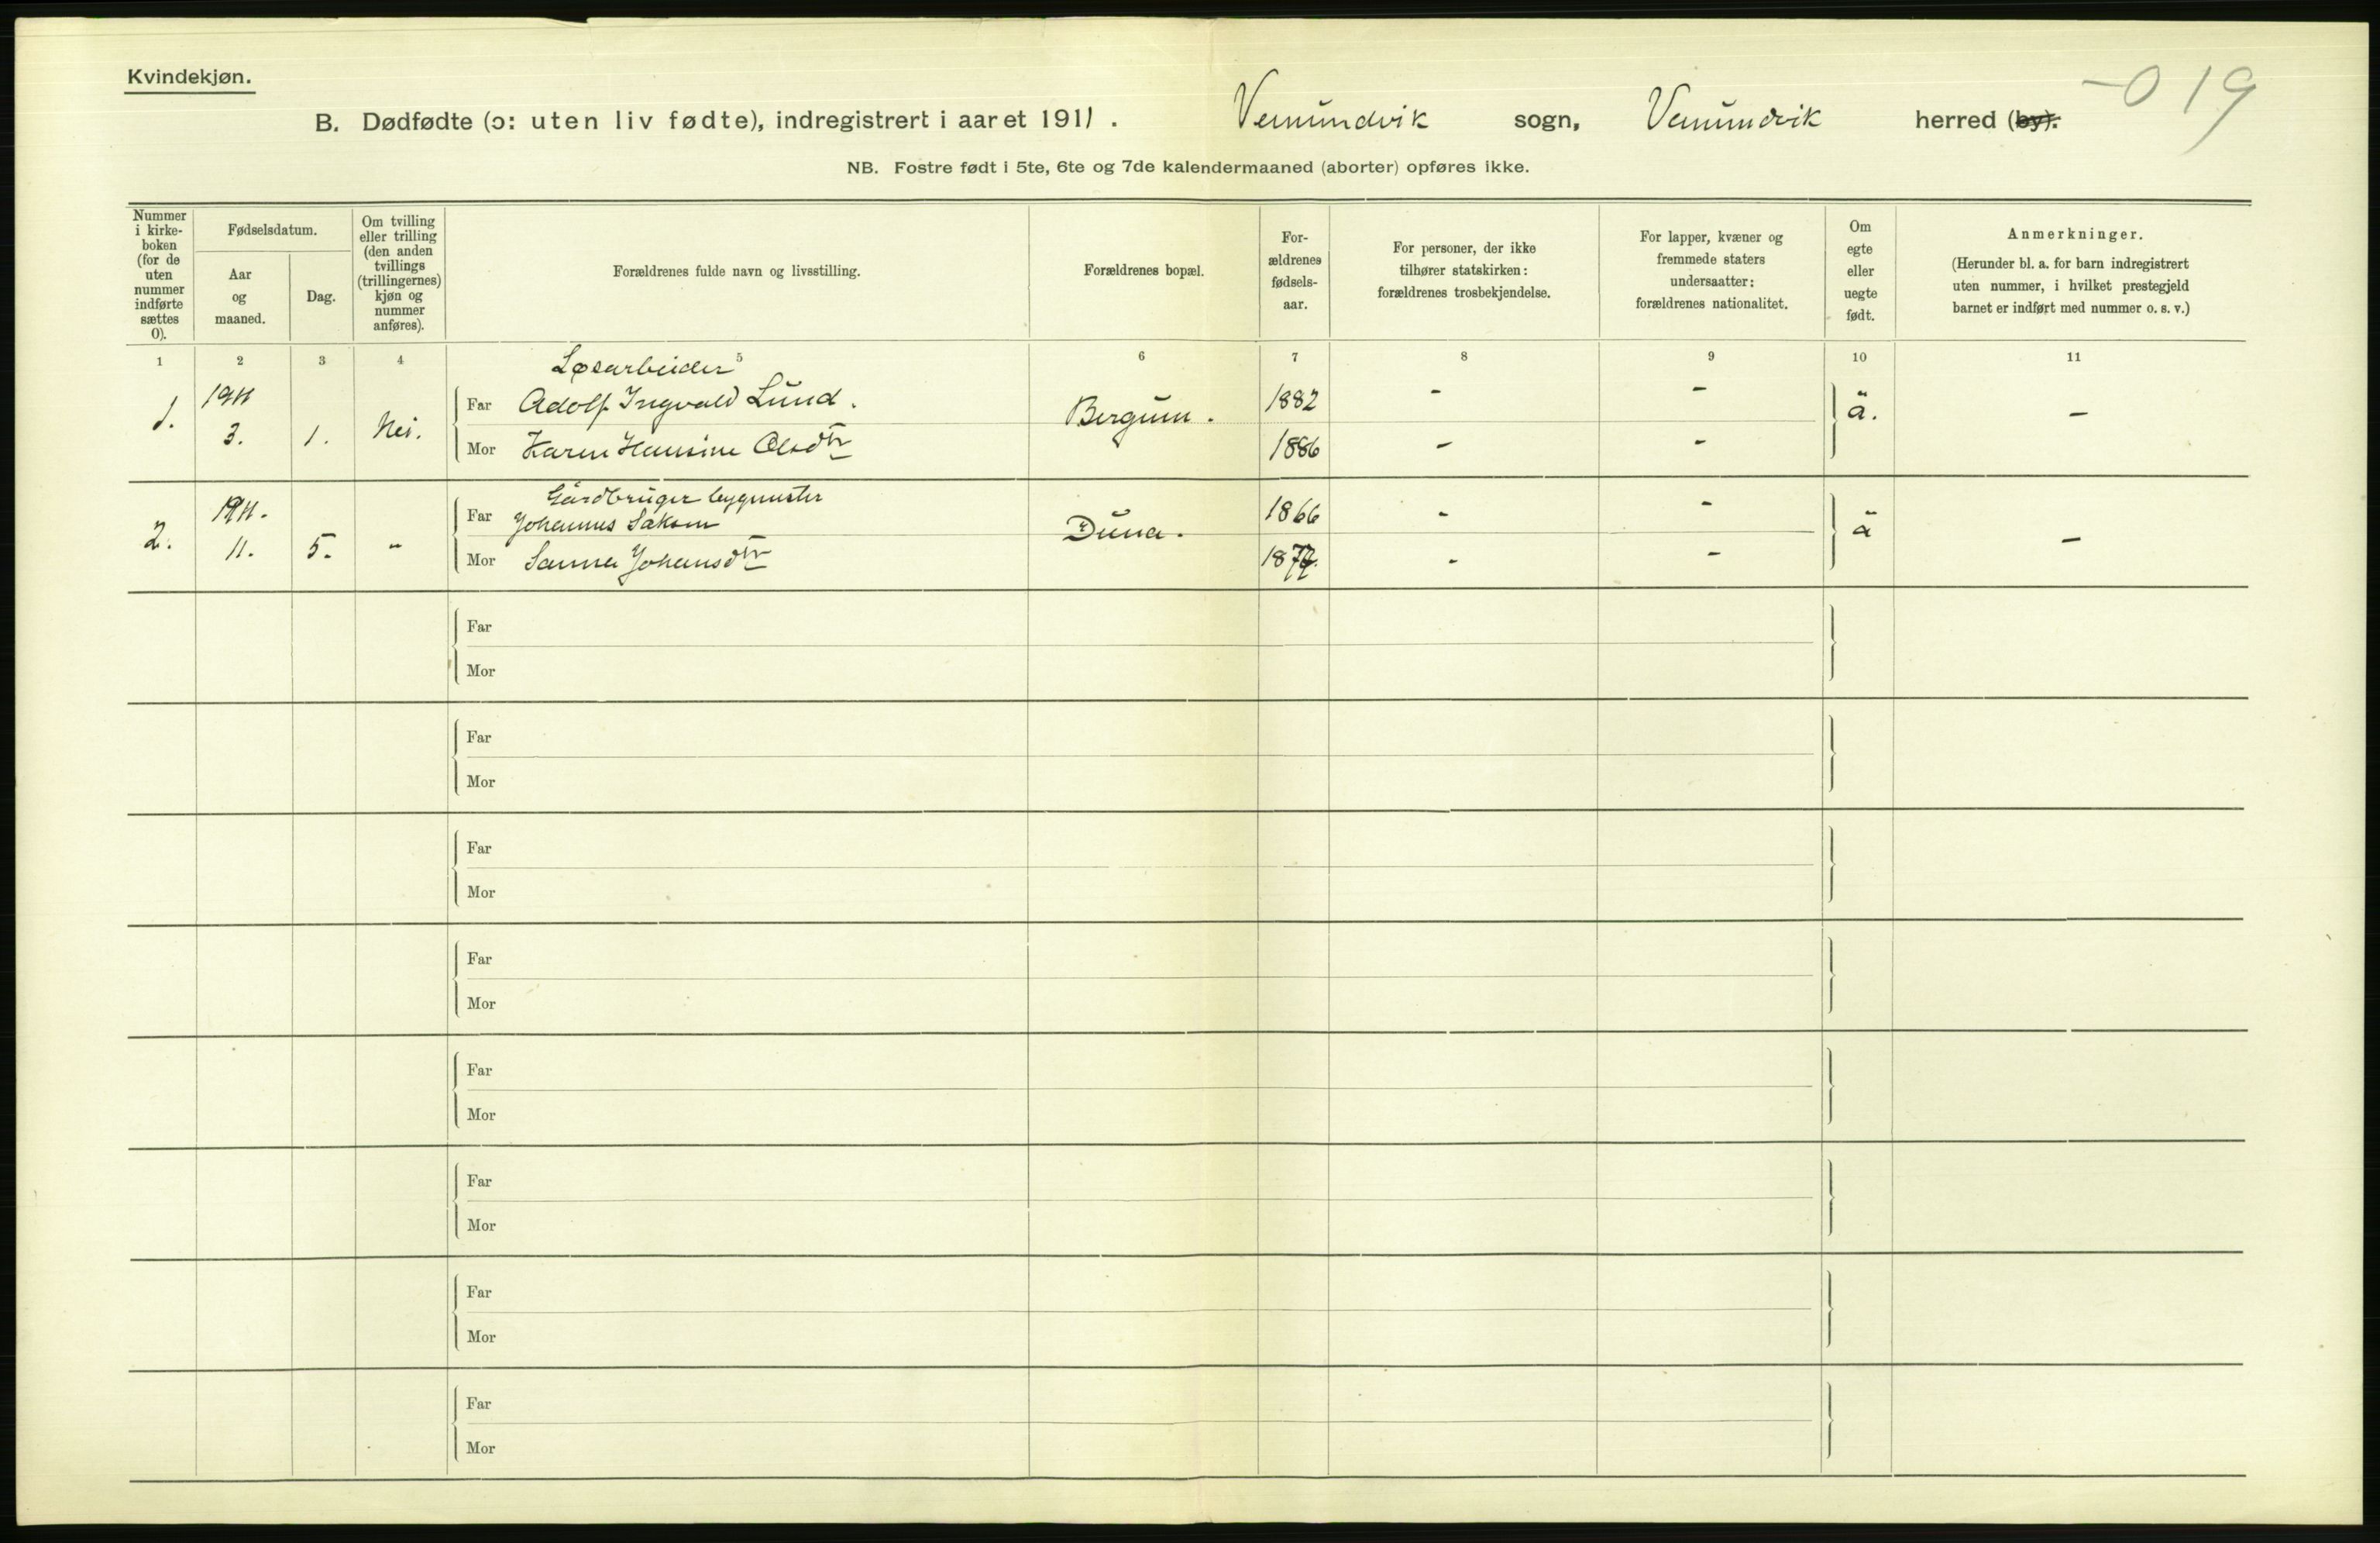 Kvindekjøn.
B. Dødfødte (ɔ: uten liv fødte), indregistrert i aaret 1911. Vemundvik sogn, Vemundvik herred (by).
-019
NB. Fostre født i 5te, 6te og 7de kalendermaaned (aborter) opføres ikke.
Nummer i kirke-boken (for de uten nummer indførte sættes 0).
Fødselsdatum.
Aar og maaned.
Dag.
Om tvilling eller trilling (den anden tvillings (trillingernes) kjøn og nummer anføres).
Forældrenes fulde navn og livsstilling.
Forældrenes bopæl.
For-ældrenes fødsels-aar.
For personer, der ikke tilhører statskirken: forældrenes trosbekjendelse.
For lapper, kvæner og fremmede staters undersaatter: forældrenes nationalitet.
Om egte eller uegte født.
Anmerkninger. (Herunder bl. a. for barn indregistrert uten nummer, i hvilket prestegjeld barnet er indført med nummer o. s. v.)
1 2 3 4 5 6 7 8 9 10 11
Løsarbeider
1. 1911 3. 1. Nei. Far Adolf Ingvald Lund. Bergum. 1882 - - ä. -
Mor Karen Hansine Olsdtr 1886 - -
Gårdbruger bygmester
2. 1911. 11. 5. - Far Johannes Saksen Duna. 1866 - - ä -
Mor Sanna Johansdtr 187 - -
Far
Mor
Far
Mor
Far
Mor
Far
Mor
Far
Mor
Far
Mor
Far
Mor
Far
Mor